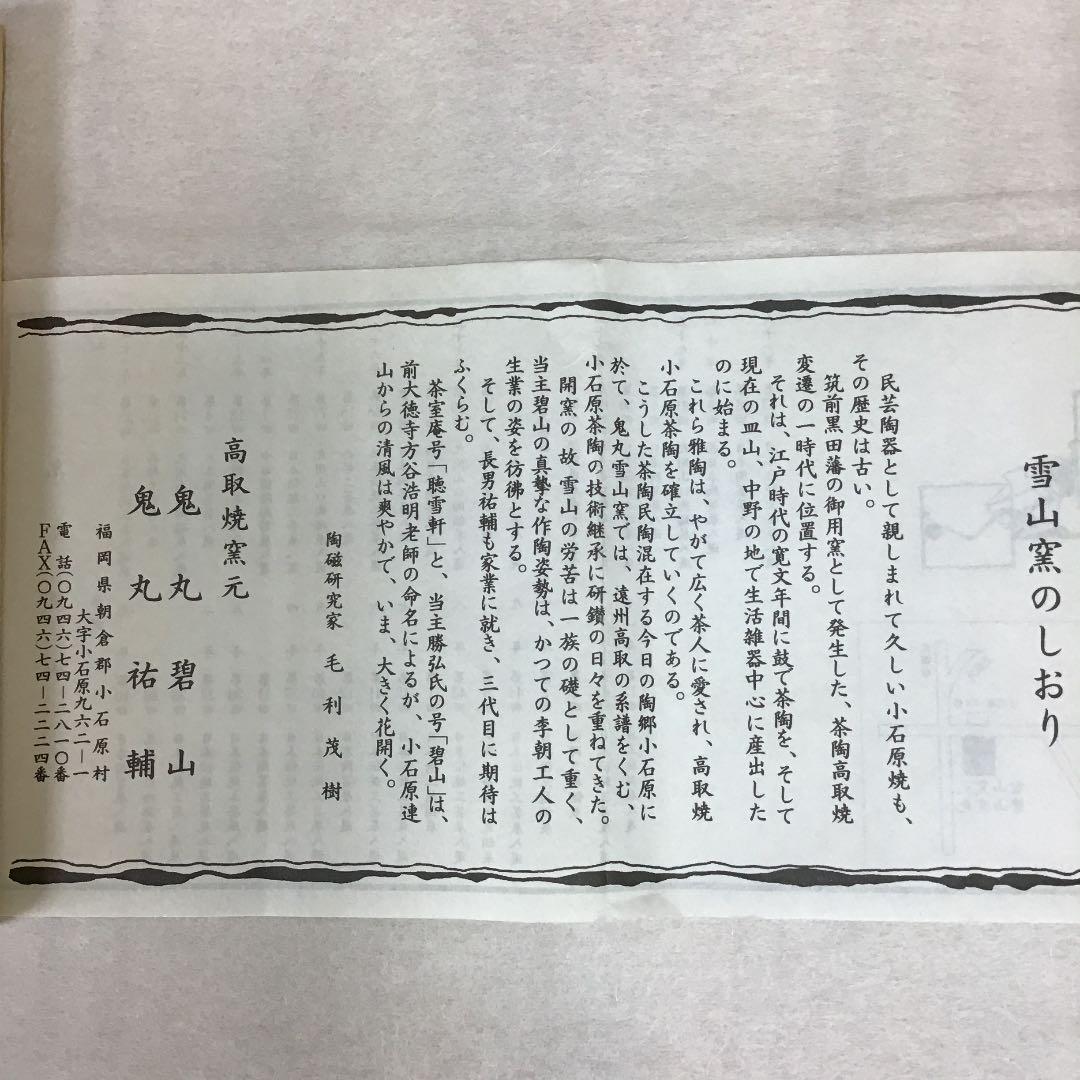 雪山窯のしおり
民芸陶器として親しまれて久しい小石原焼も、
その歴史は古い。
筑前黒田藩の御用窯として発生した、茶陶高取焼
変遷の一時代に位置する。
それは、江戸時代の寛文年間に鼓で茶陶を、そして
現在の皿山、中野の地で生活雑器中心に産出した
のに始まる。
これら雅陶は、やがて広く茶人に愛され、高取焼
小石原茶陶を確立していくのである。
こうした茶陶民陶混在する今日の陶郷小石原に
於て、鬼丸雪山窯では、遠州高取の系譜をくむ、
小石原茶陶の技術継承に研鑽の日々を重ねてきた。
開窯の故 雪山の労苦は一族の礎として重く、
当主碧山の真摯な作陶姿勢は、かつての李朝工人の
生業の姿を彷彿とする。
そして、長男祐輔も家業に就き、三代目に期待は
ふくらむ。
茶室庵号「聴雪軒」と、当主勝弘氏の号「碧山」は、
前大徳寺方谷浩明老師の命名によるが、小石原連
山からの清風は爽やかで、いま、大きく花開く。
陶磁研究家 毛利茂樹
高取焼窯元
鬼丸碧山
鬼丸祐輔
福岡県朝倉郡小石原村
大字小石原九六二ー一
電話(〇九四六)七四ー二八一〇番
FAX(〇九四六)七四ー二二二四番